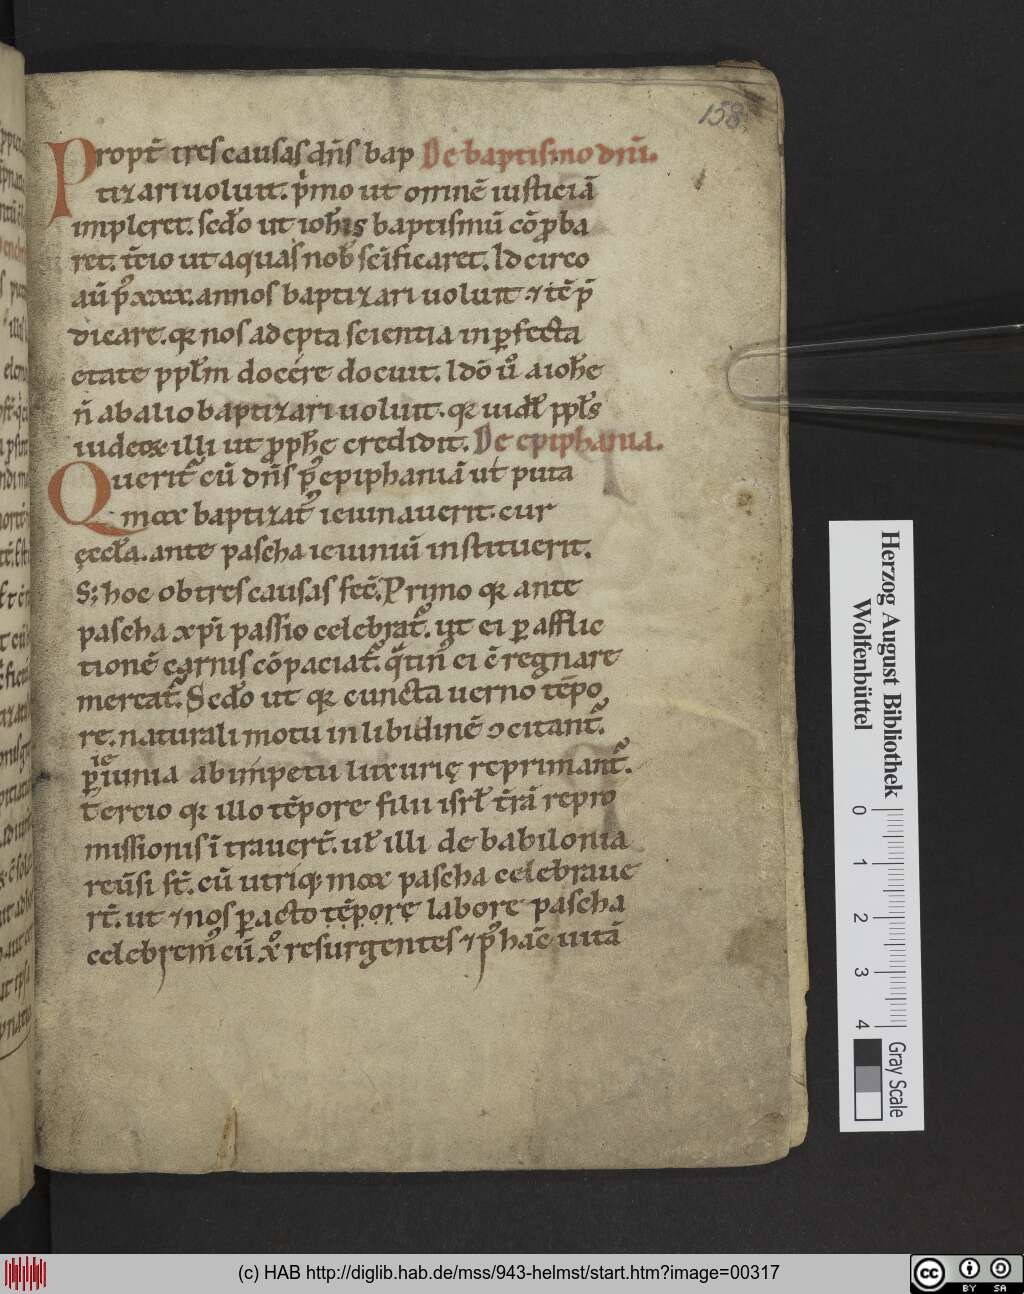 158
Propt̄ tres causas dn̄s bap De baptismo dn̄i.
tizari uoluit. p̄mo ut omnē iusticiā
impleret. scd̄o ut ioh̄is baptismū cō ꝓba
ret. t̄cio ut aquas nob̄ scīficaret. Id circo
aū p̄ xxx. annos baptizari uoluit. ⁊ tē p̄
dicare. qꝛ nos adepta scientia in ꝑfecta
etate ppl̄m docére docuit. Idō ū̊ a ioh̄e
n̄ ab alio baptizari uoluit. qꝛ uidꝉ ppl̄s
iudeoꝝ illi ut ꝓph̄ę credidit. De epiphania.
Querit᷑ cū dn̄s p̄ epiphaniā ut puta
mox baptizat᷑ ieiunauerit. cur
ęccl̄a. ante pascha ieiuniū instituerit.
S; hoc ob tres causas fec̄. Primo qꝛ ante
pascha xp̄i passio celebrat᷑. ut ei ꝑ afflic
tionē carnis cōpaciat᷑. q̄tin᷒ ei c̄regnare
mereat᷑. Scd̄o ut qꝛ cuncta uerno tēpo
re. naturali motu in libidinē ɔcitant᷑.
ie
ꝑ iunia ab impetu luxurię reprimant᷑.
Tercio qꝛ illo tēpore filii isrl̄ t̄rā repro
missionis ītrauert̄. uꝉ illi de babilonia
reūsi st̄. cū utriq; mox pascha celebraue
rt̄. ut ⁊ nos ꝑacto tēpore labore pascha
celebrem᷒ cū xp̊ resurgentes ⁊ p᷒ hāc uitā
Herzog August Bibliothek
Wolfenbüttel
0 1 2 3 4
Gray Scale
(c) HAB http://diglib.hab.de/mss/943-helmst/start.htm?image=00317
cc BY SA